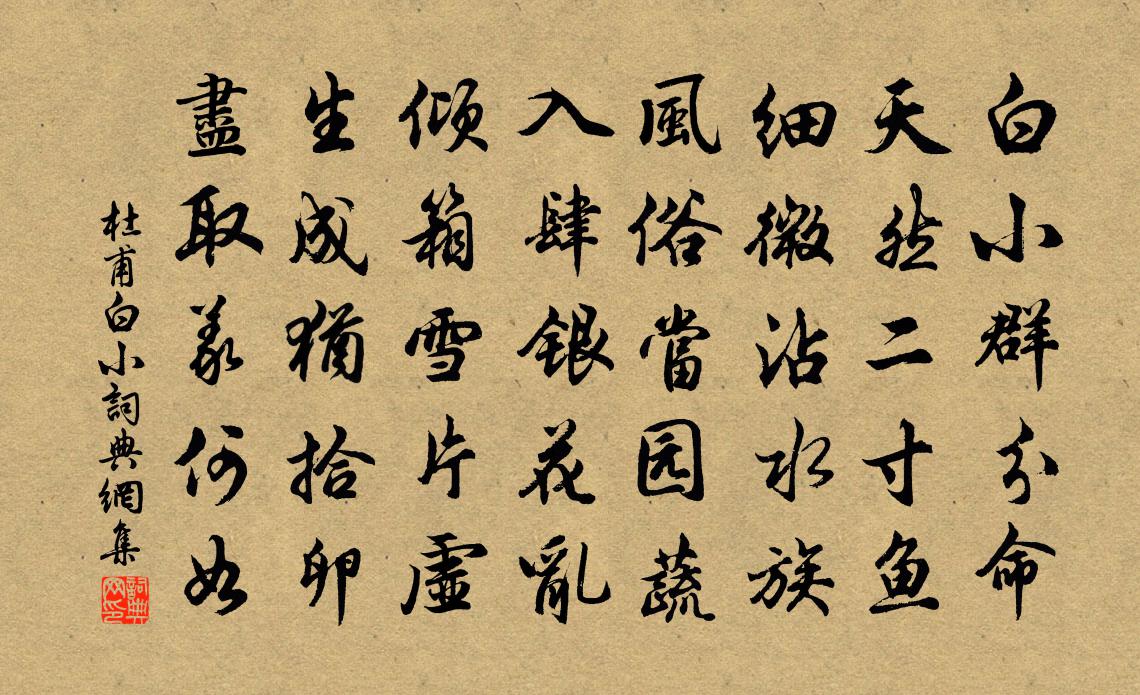 白小群分命
天然二寸鱼
细微沾水族
風俗當园蔬
入肆银花亂
倾箱雪片虚
生成猶拾卵
盡取义何如
杜甫白小詞典網集
詞典网印